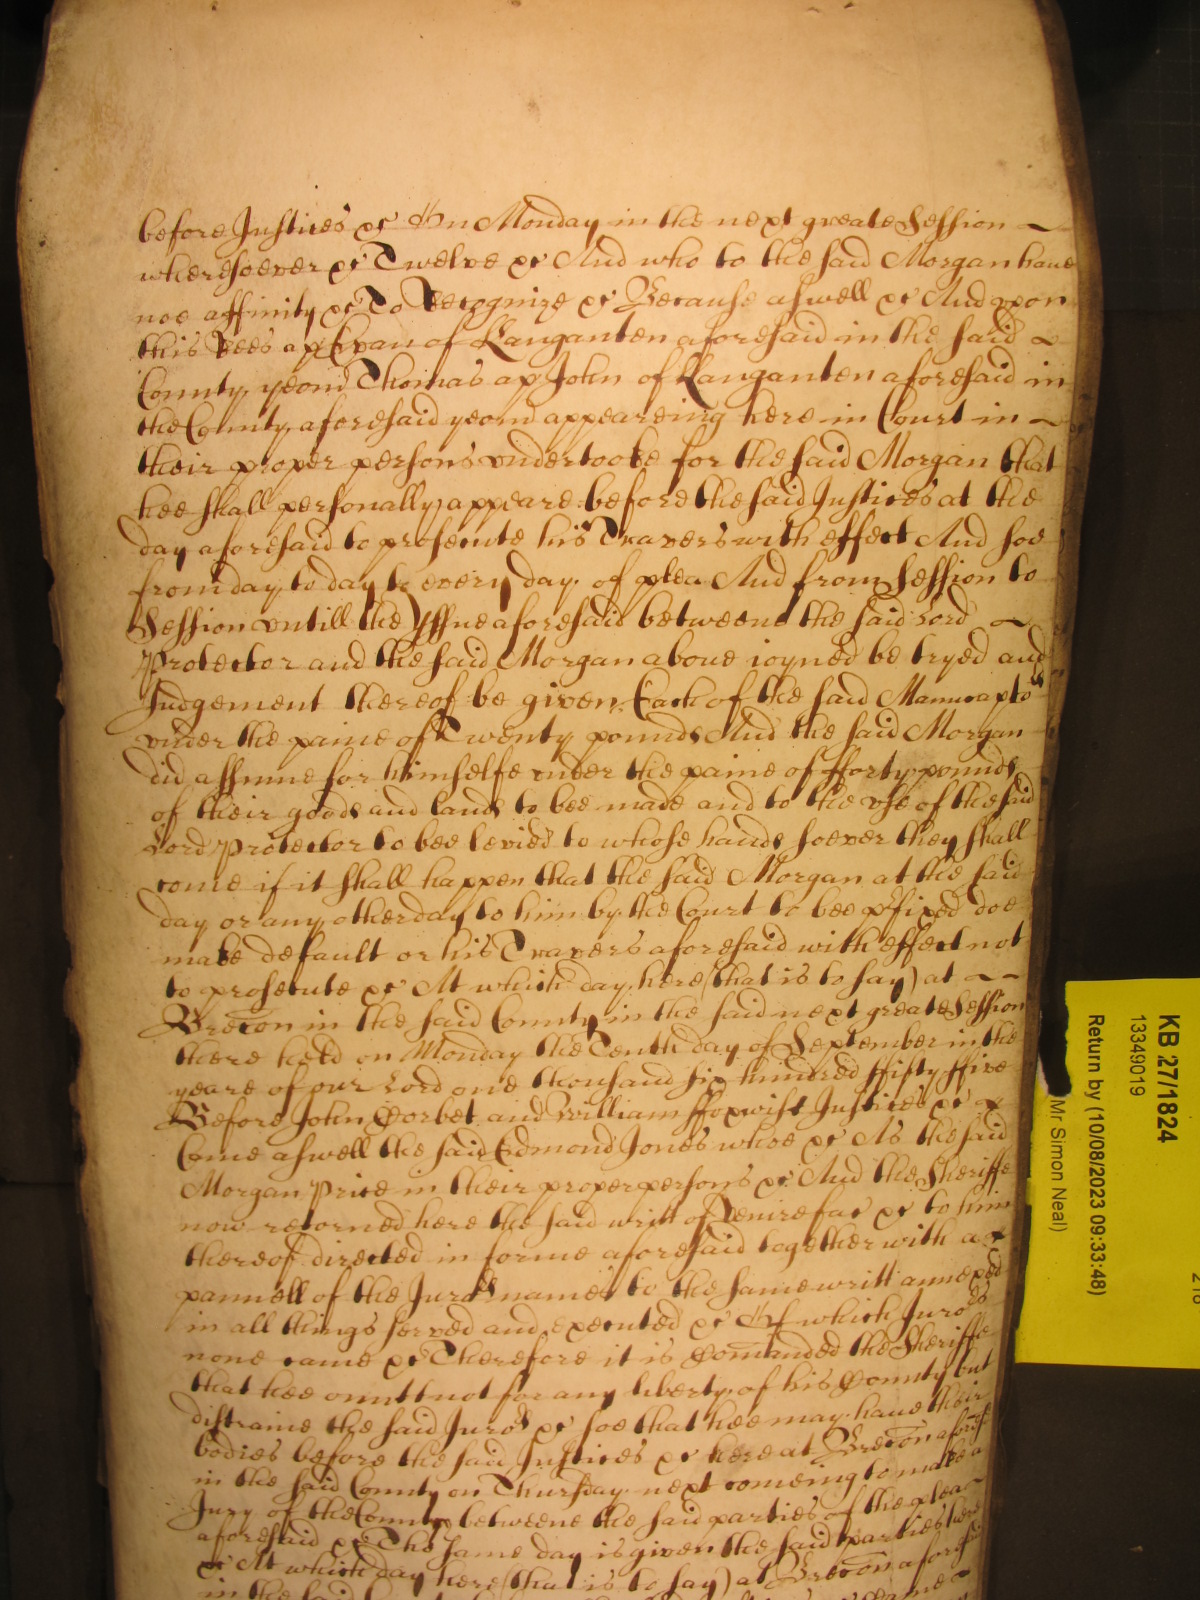 before Justices &c On Monday in the next greate Session
wheresoever &c Twelve &c And who to the said Morgan haue
noe affinity &c To Recognize &c Because aswell &c And vpon
this Rees ap Evan of Langanten aforesaid in the said
County yeom Thomas ap John of Langanten aforesaid in
the County aforesaid yeom appeareing here in Court in
their proper persons vndertooke for the said Morgan that
hee shall personally appeare before the said Justices at the
day aforesaid to prosecute his Travers with effect And soe
from day to day to every day of plea And from Session to
Session vntill the Yssue aforesaid betweene the said Lord
Protector and the said Morgan aboue ioyned be tryed and
Judgement thereof be given Each of the said Manucaptors
vnder the paine of Twenty pounds And the said Morgan
did assume for himselfe vnder the paine of fforty pounds
of their goods and lands to bee made and to the vse of the said
Lord Protector to bee levied to whose hands soever they shall
come if it shall happen that the said Morgan at the said
day or any other day to him by the Court to bee pfixed doe
make default or his Travers aforesaid with effect not
to prosecute &c At which day here (that is to say) at
Brecon in the said County in the said next greate Session
there held on Monday the Tenth day of September in the
yeare of our Lord one thousand six hundred ffifty ffive
Before John Corbet and William ffoxwist Justices &c
Came aswell the said Edmond Jones whoe &c As the said
Morgan Price in their proper persons &c And the Sheriffe
now retorned here the said writt of Venire fac &c to him
thereof directed in forme aforesaid together with a
pannell of the Jurors names to the same writt annexed
in all things served and executed &c Of which Jurors
none came &c Therefore it is Comanded the Sheriffe
that hee omitt not for any liberty of his County but
distraine the said Jurors &c soe that hee may haue their
bodies before the said Justices &c here at Brecon aforesd
in the said County on Thursday next comeing to make a
Jury of the County betweene the said parties of the plea
aforesaid &c The same day is given the said parties here
&c At which day here (that is to say) at Brecon aforesaid
in the said
KB 27/1824
13349019
Return by (10/08/2023 09:33:48)
Mr Simon Neal)